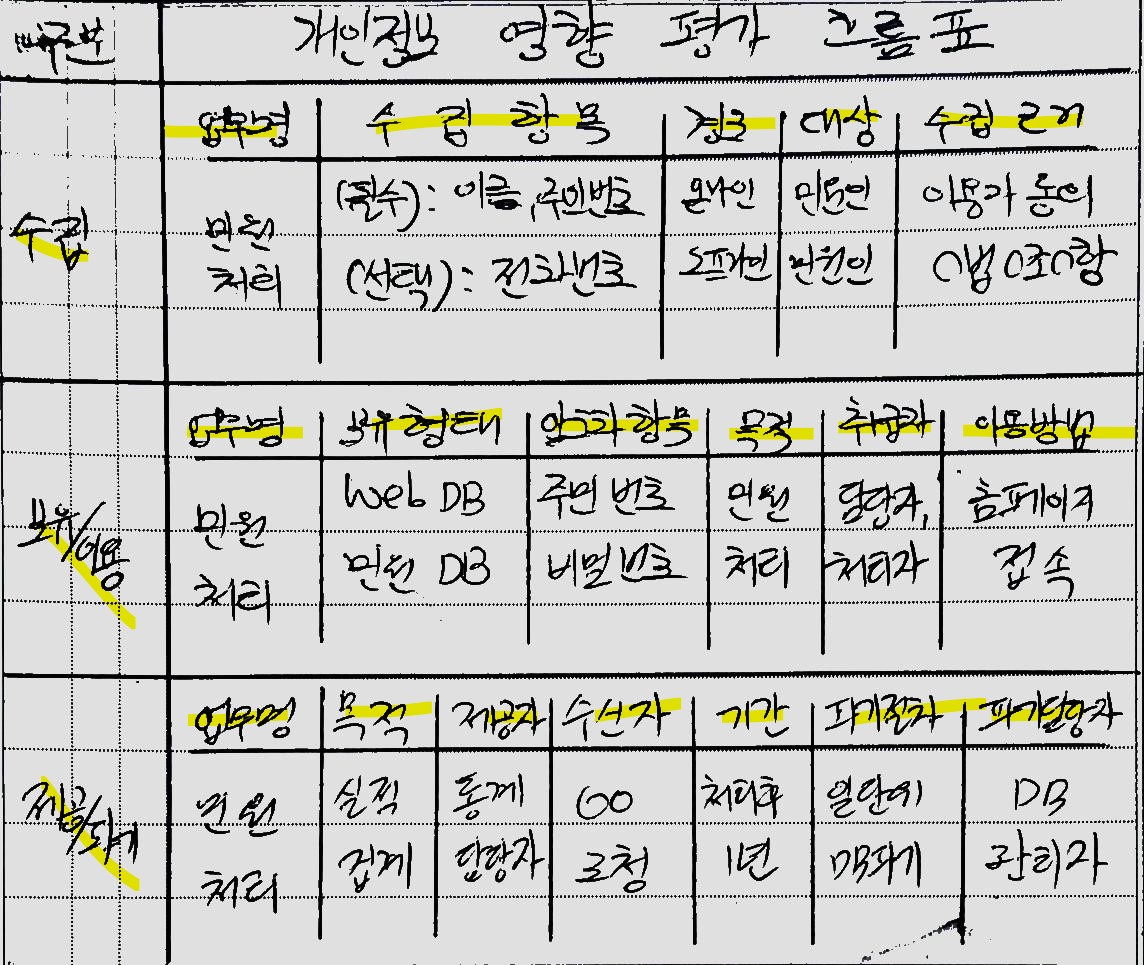 구분 개인정보 영향 평가 흐름표
업무명 수집항목 경로 대상 수집근거
수집
민원 (필수): 이름, 주민번호 온라인 민원인 이용자 동의
처리 (선택): 전화번호 오프라인 민원인 ○법 ○조 ○항
업무명 보유형태 암호화항목 목적 취급자 이용방법
보유/이용
민원 Web DB 주민번호 민원 담당자, 홈페이지
처리 민원 DB 비밀번호 처리 처리자 접속
업무명 목적 제공자 수신자 기간 파기절차 파기담당자
제공/파기
민원 실적 통계 OO 처리후 일단위 DB
처리 집계 담당자 교청 1년 DB파기 관리자